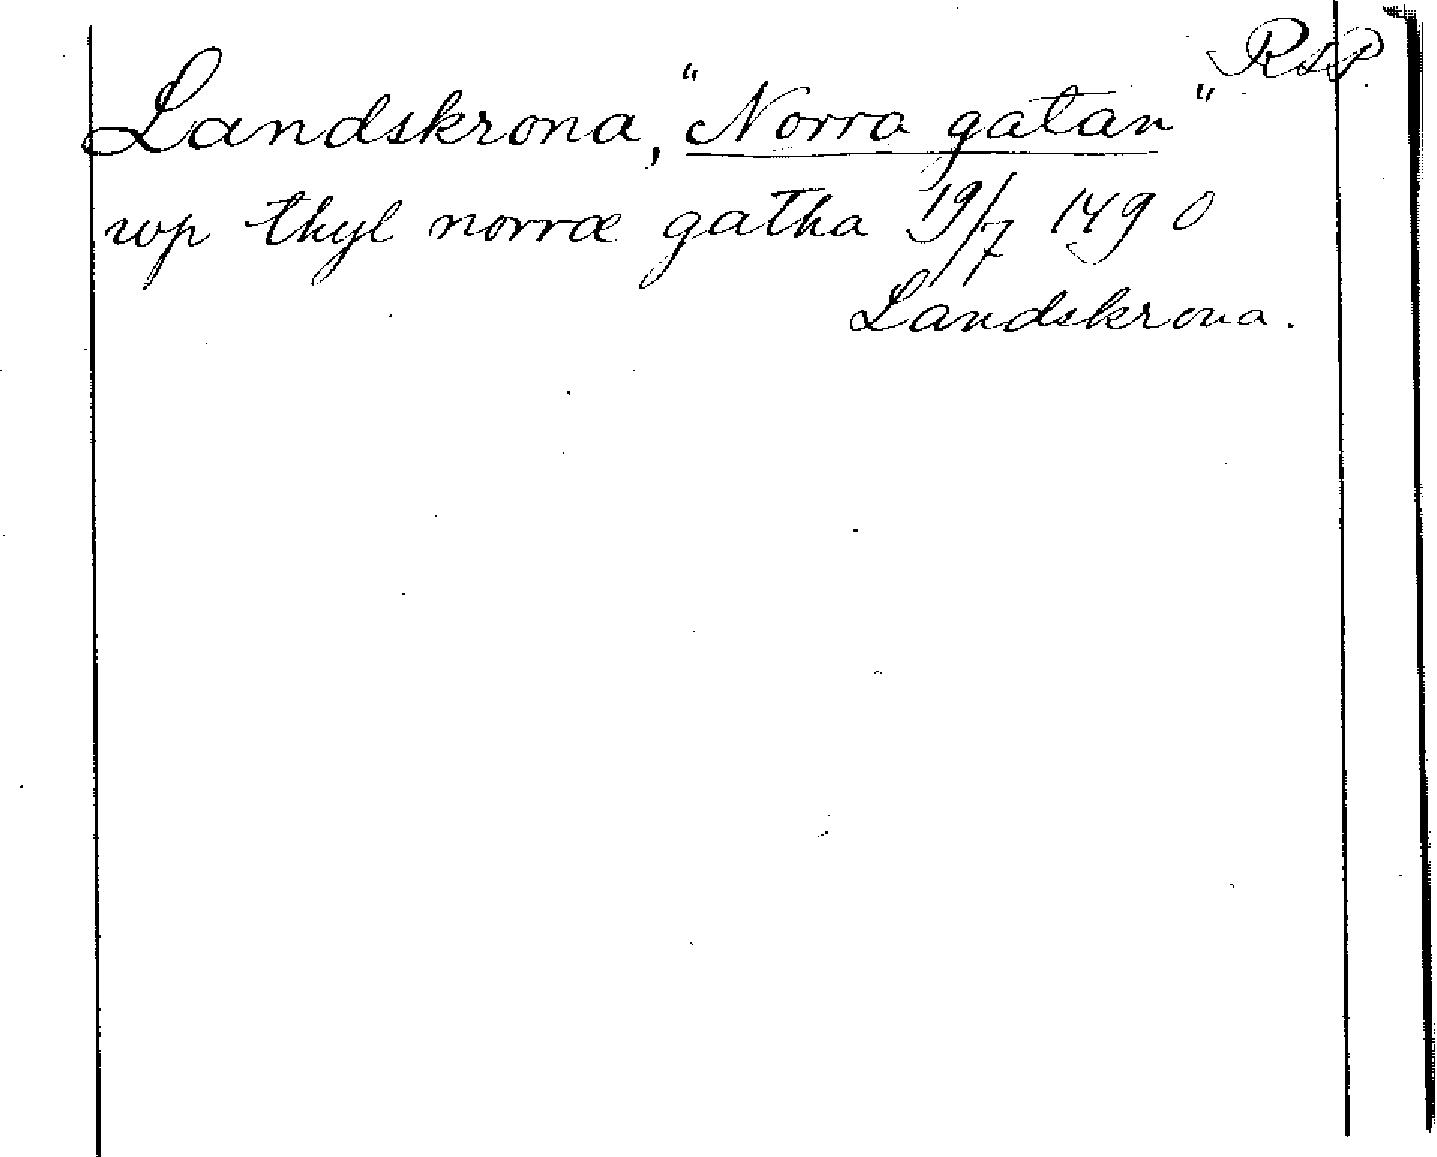 RAP.
Landskrona, "Norra gatan"
wp thyl norræ gatha 19/7 1490
Landskrona.